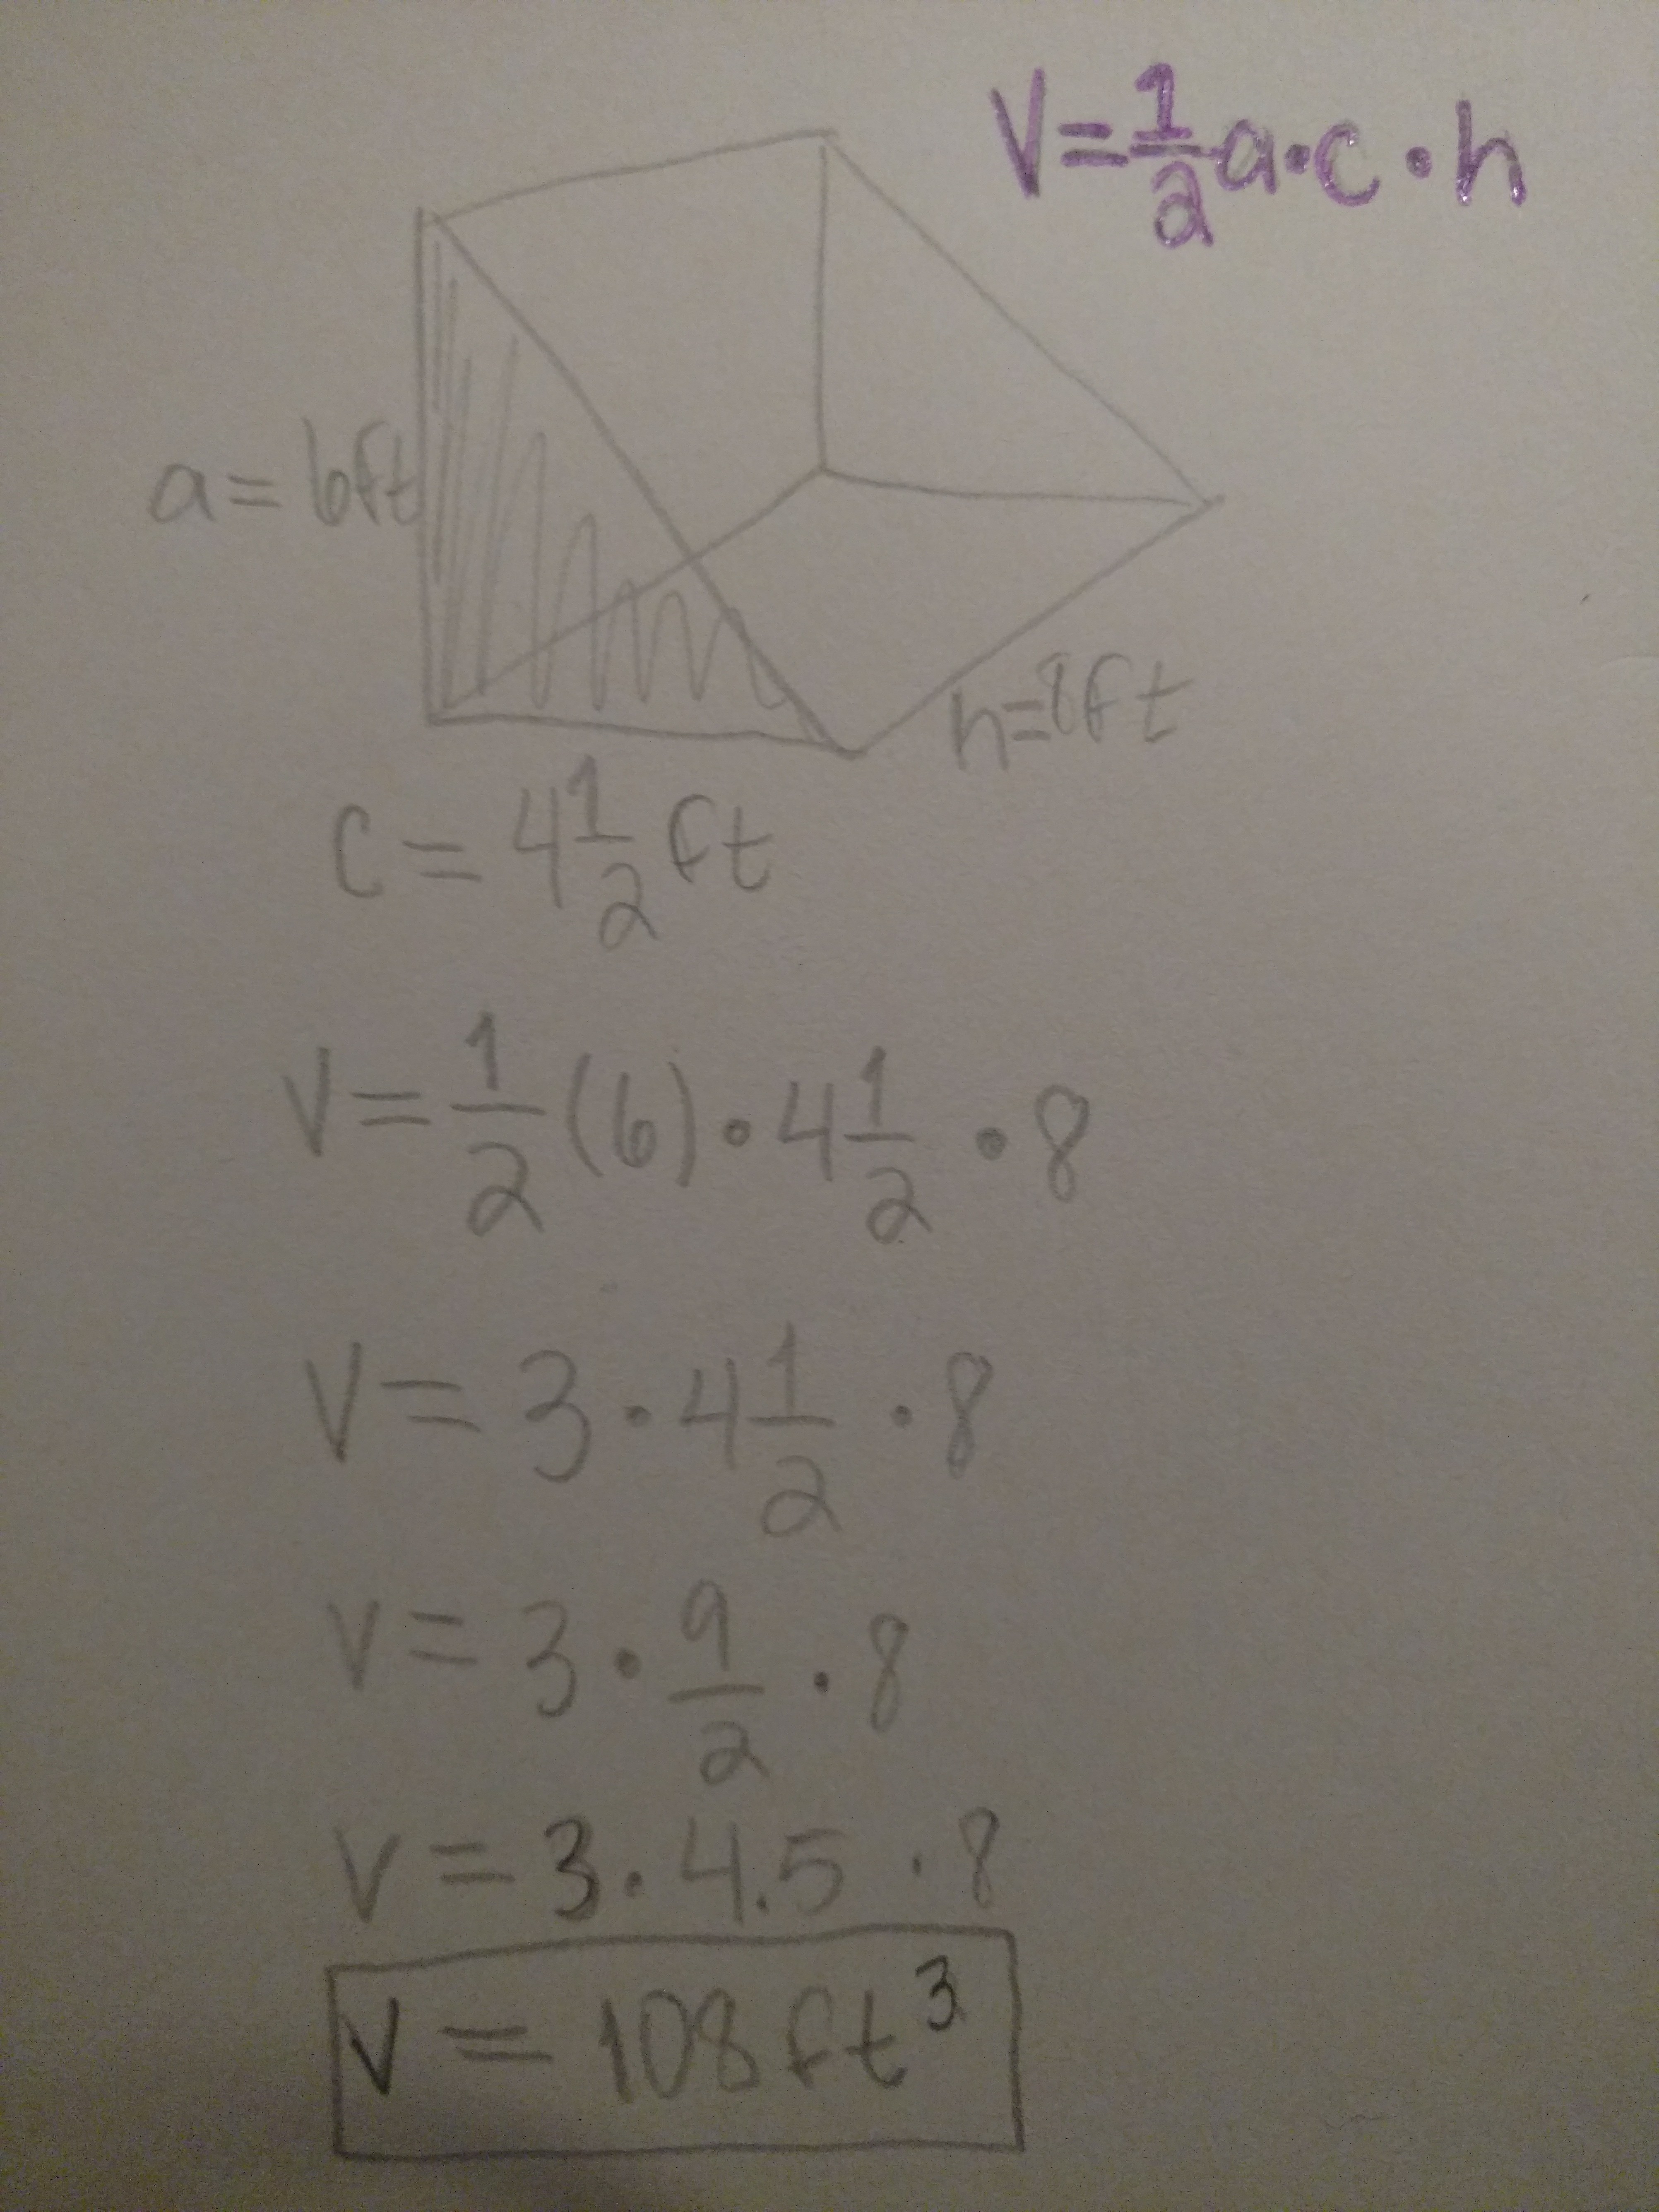 V=1/2a·c·h
a=6ft
h=8ft
c=4 1/2 ft
V=1/2(6)·4 1/2·8
V=3·4 1/2·8
V=3·9/2·8
V=3·4.5·8
V=108ft³